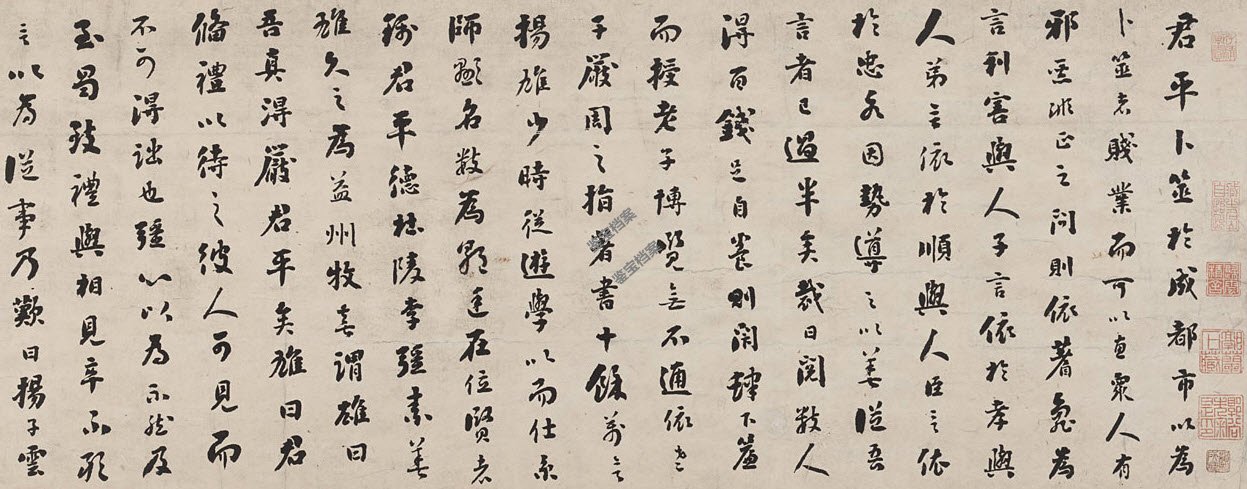 君平卜筮於成都市以為
卜筮者賤業而可以惠眾人有
邪惡非正之問則依蓍龜為
言利害與人子言依於孝與
人弟言依於順與人臣言依
於忠各因勢導之以善從吾
言者已過半矣裁日閱數人
得百錢足自養則閉肆下簾
而授老子博覽無不通依老
子嚴周之指著書十餘萬言
楊雄少時從遊學以而仕京
師顯名數為朝廷在位賢者
稱君平德杜陵李彊素善
雄久之為益州牧喜謂雄曰
吾真得嚴君平矣雄曰君
脩禮以待之彼人可見而
不可得詘也彊心以為不然及
至蜀致禮與相見卒不敢
言以為從事乃歎曰楊子雲
鉴宝档案